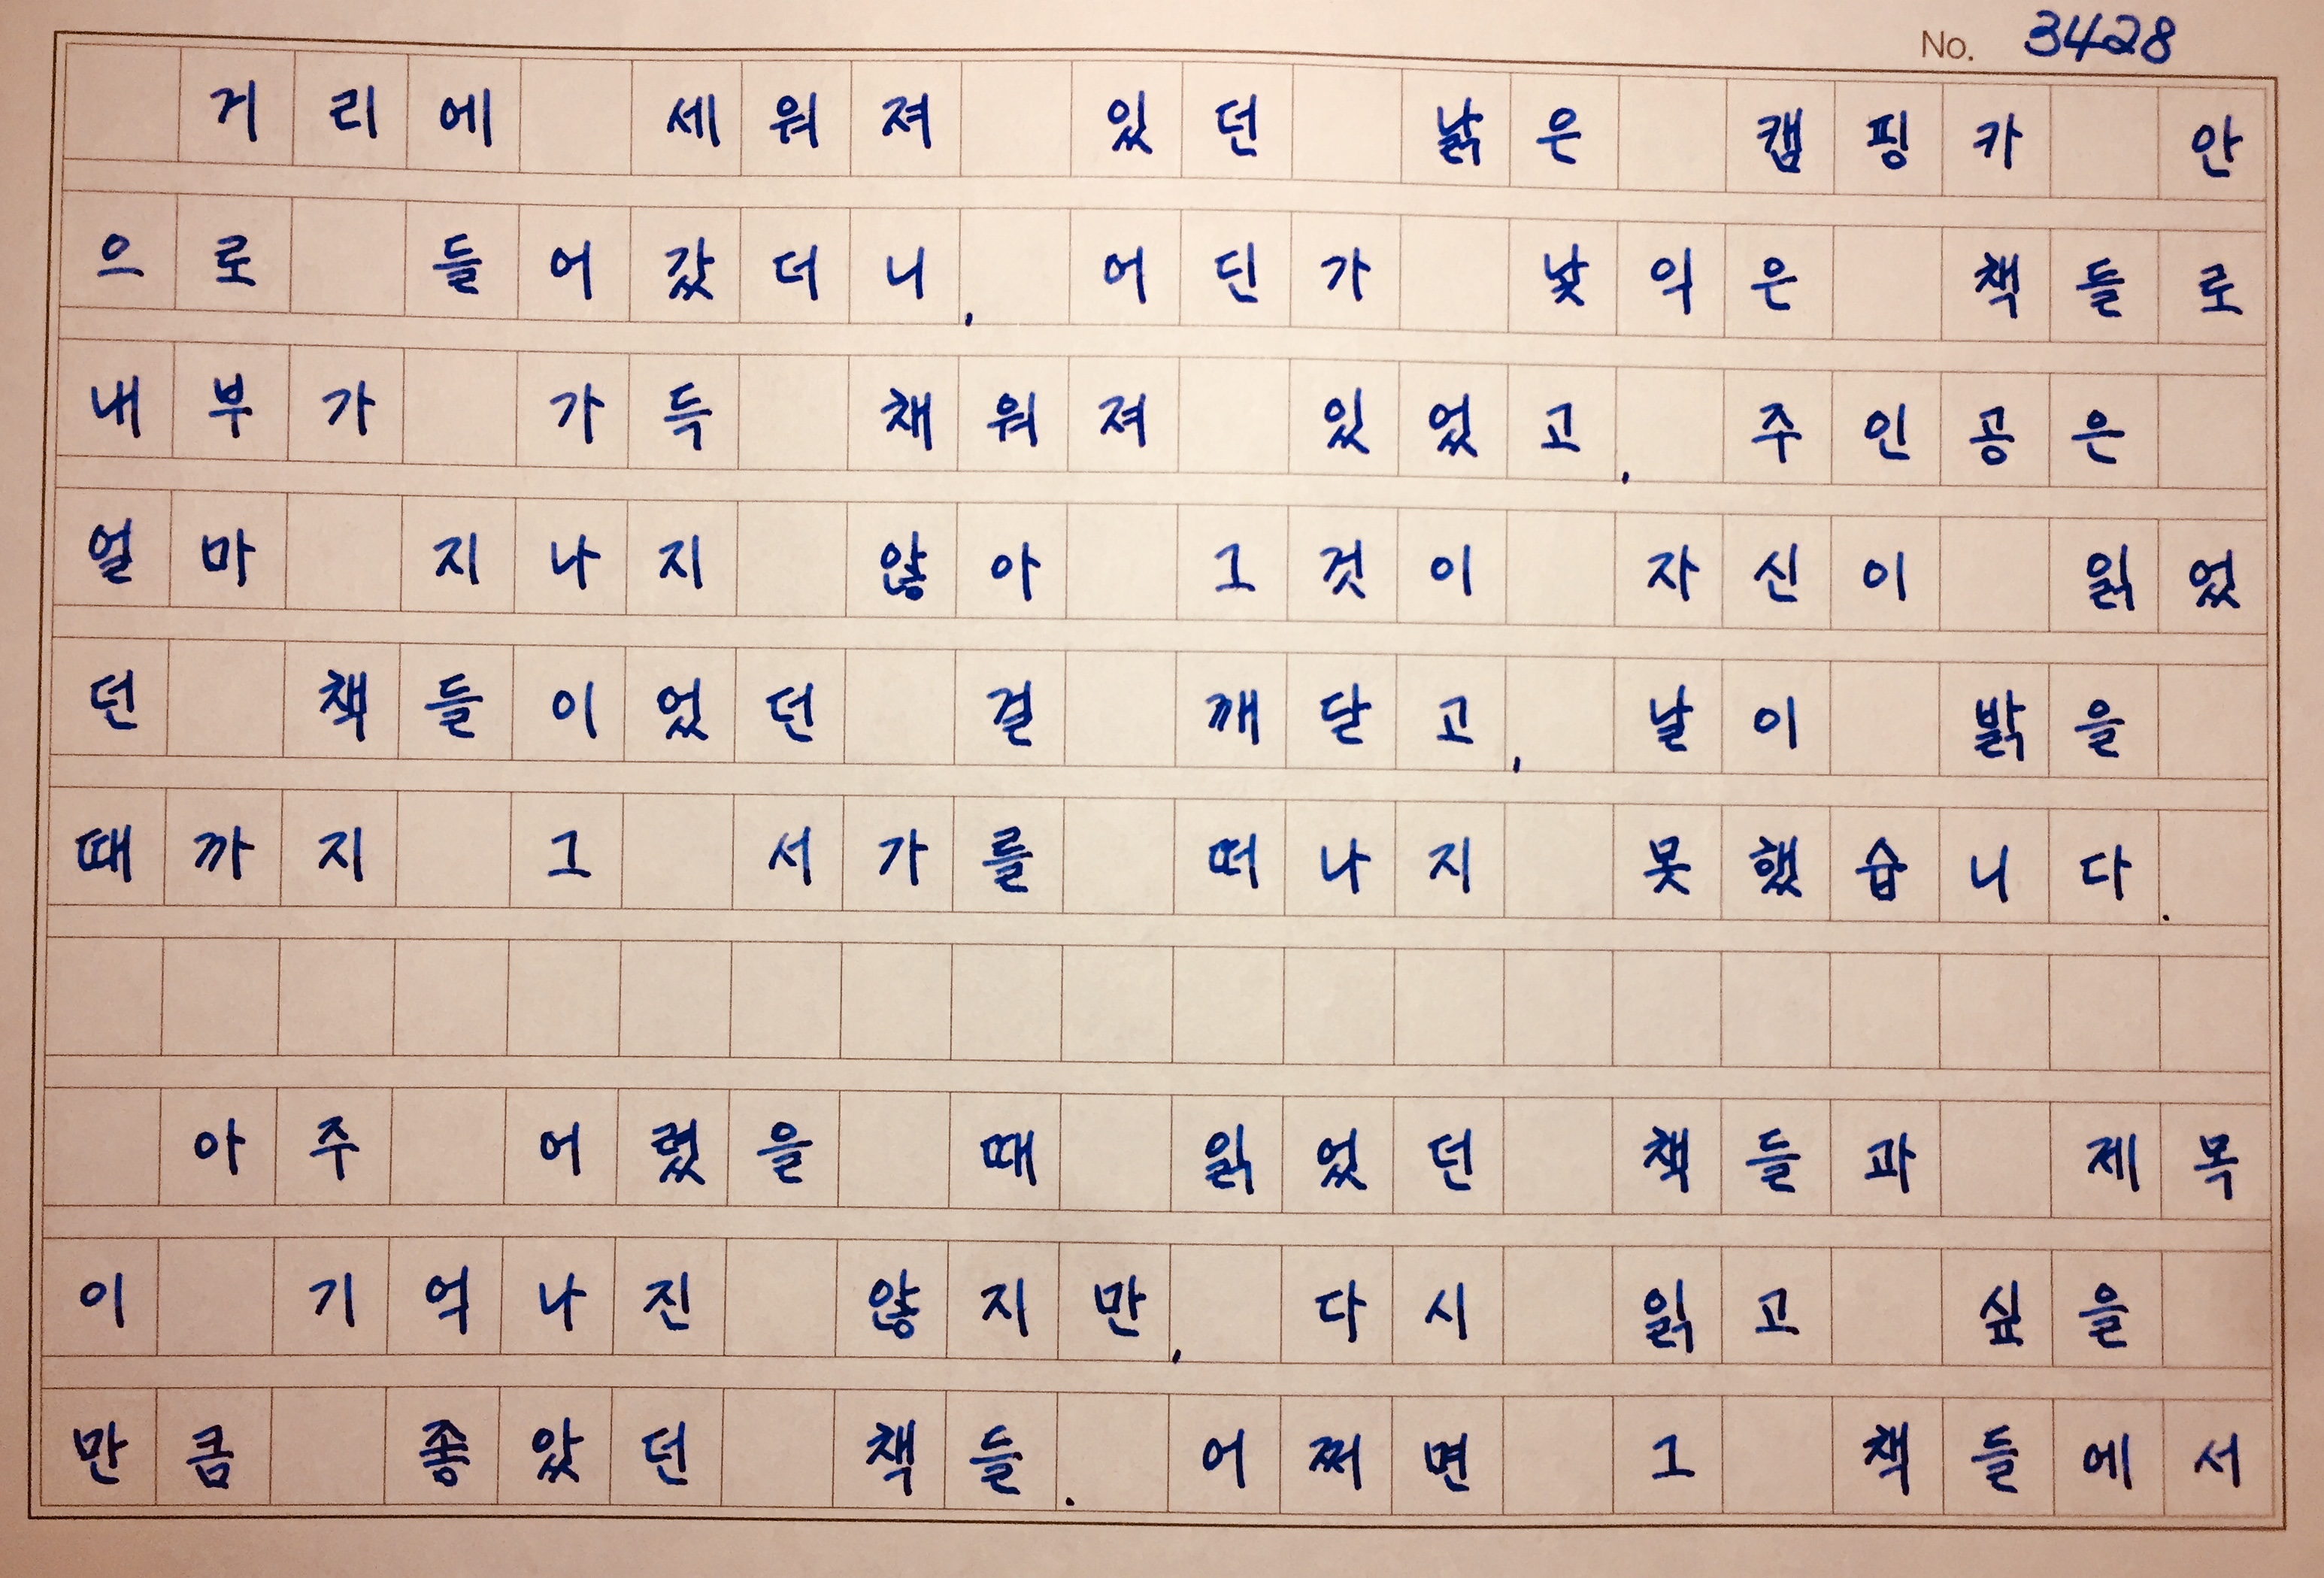 No. 3428
거리에 세워져 있던 낡은 캠핑카 안
으로 들어갔더니, 어딘가 낯익은 책들로
내부가 가득 채워져 있었고, 주인공은
얼마 지나지 않아 그것이 자신이 읽었
던 책들이었던 걸 깨닫고, 날이 밝을
때까지 그 서가를 떠나지 못했습니다.
아주 어렸을 때 읽었던 책들과 제목
이 기억나진 않지만, 다시 읽고 싶을
만큼 좋았던 책들. 어쩌면 그 책들에서